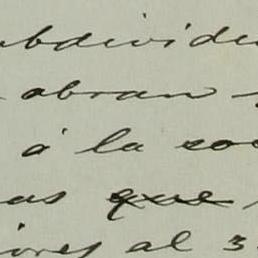 ubdividi
abran
á la soc
as que
iores al 3